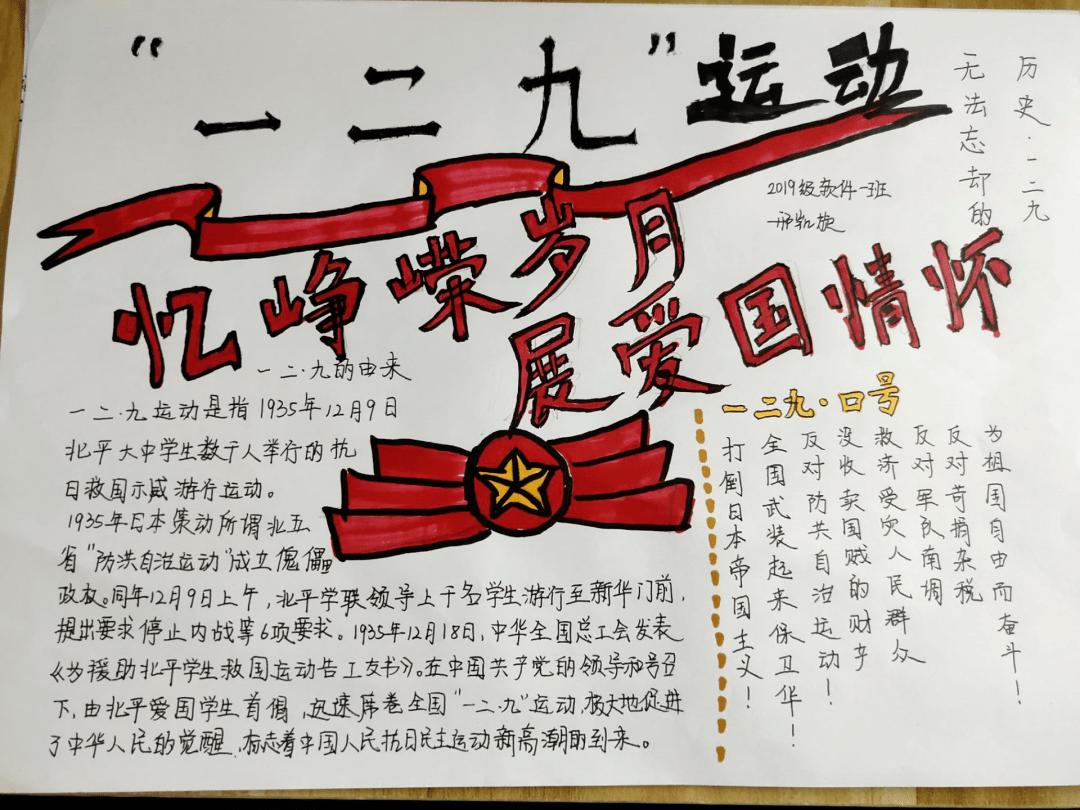 “一二九”运动
历史·一二九
无法忘却的
2019级软件一班
邢凯旋
忆峥嵘岁月
展爱国情怀
一二·九的由来
一二·九运动是指1935年12月9日
北平大中学生数千人举行的抗
日救国示威游行运动。
1935年日本策动所谓北五
省“防洪自治运动”成立傀儡
政权。同年12月9日上午,北平学联领导上千名学生游行至新华门前,
提出要求停止内战等6项要求。1935年12月18日,中华全国总工会发表
《为援助北平学生救国运动告工友书》。在中国共产党的领导和号召
下,由北平爱国学生首倡,迅速席卷全国“一二·九”运动,极大地促进
了中华人民的觉醒,标志着中国人民抗日民主运动新高潮的到来。
一二九·口号
为祖国自由而奋斗!
反对苛捐杂税
反对军队南调
救济受灾人民群众
没收卖国贼的财产
反对防共自治运动!
全国武装起来保卫华!
打倒日本帝国主义!